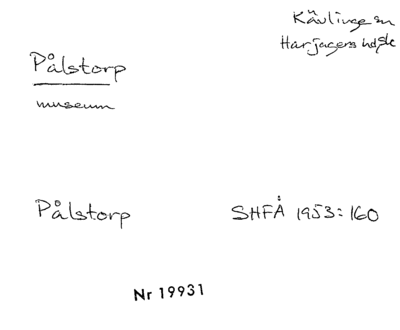 Kävlinge sn
Harjagers hd, Sk
Pålstorp
museum
Pålstorp SHFÅ 1953: 160
Nr 19931